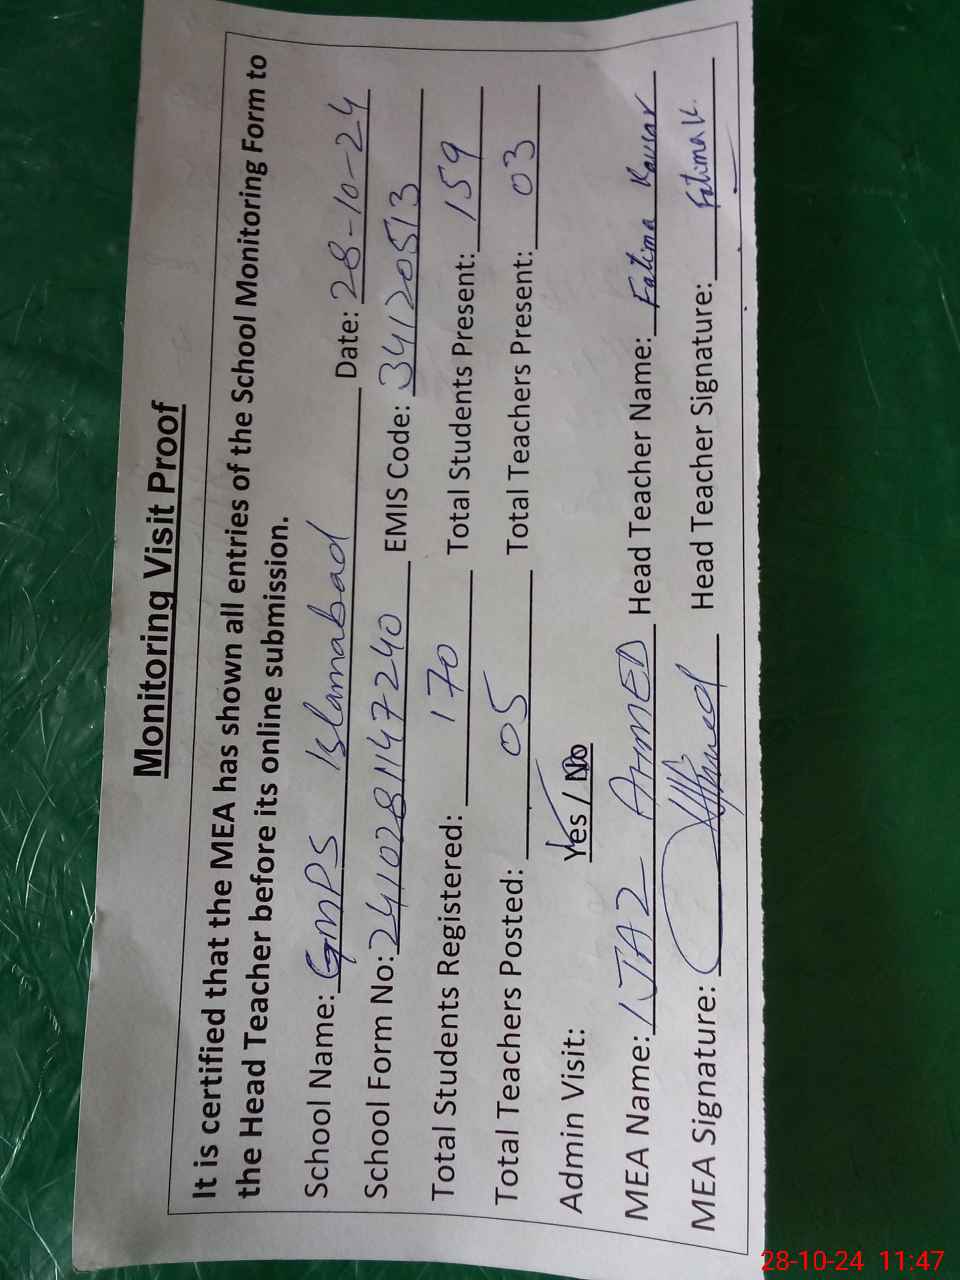 Monitoring Visit Proof
It is certified that the MEA has shown all entries of the School Monitoring Form to
the Head Teacher before its online submission.
School Name: GMPS Islamabad Date: 28-10-24
School Form No: 2410281147240 EMIS Code: 34120513
Total Students Registered: 170 Total Students Present: 159
Total Teachers Posted: 05 Total Teachers Present: 03
Admin Visit: Yes / No
MEA Name: IJAZ AHMED Head Teacher Name: Fatima Kausar
MEA Signature: Ahmed Head Teacher Signature: Fatima K.
28-10-24 11:47